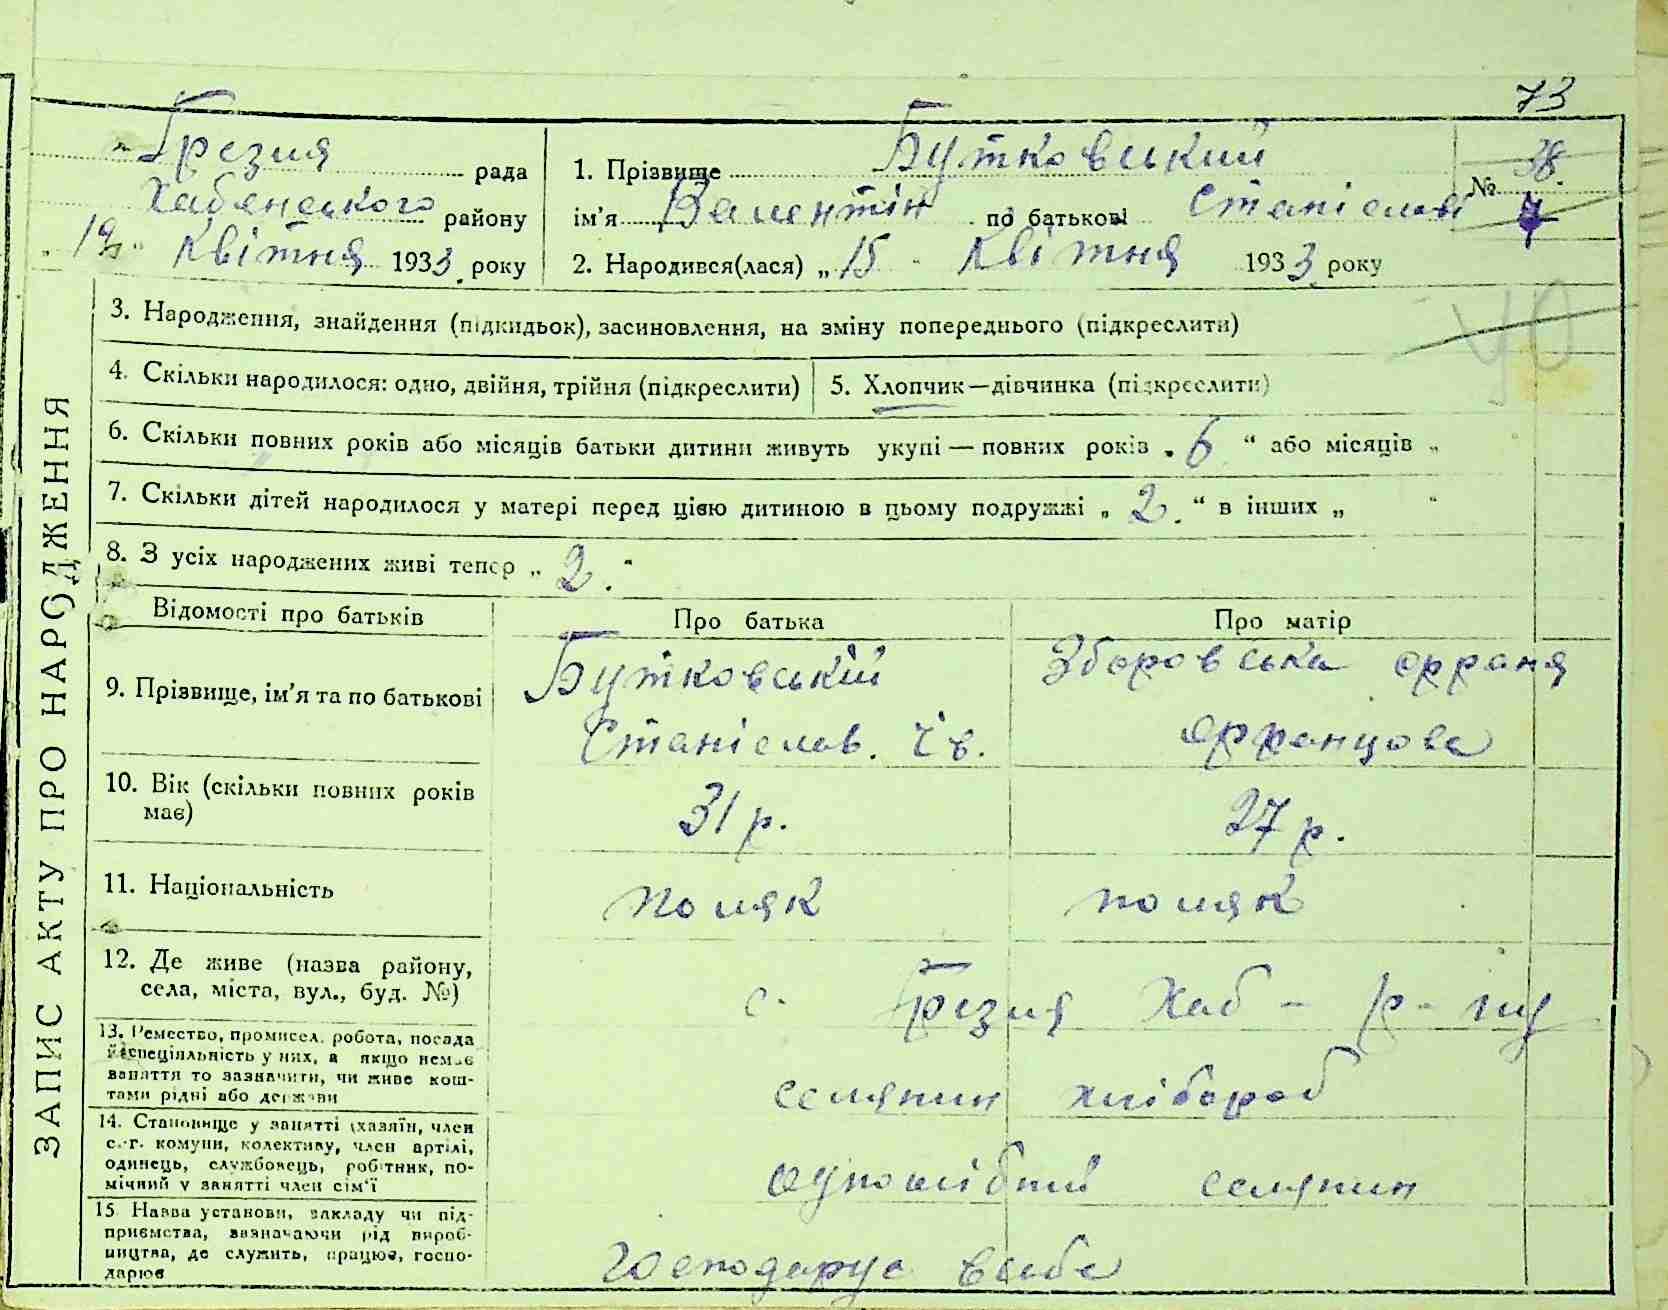 73
Грезля рада
Хабенського району
„19“ Квітня 1933 року
1. Прізвище Бутковський
ім'я Валентін по батькові Станіславів
№ 38
7
2. Народився(лася) „15“ Квітня 1933 року
40
ЗАПИС АКТУ ПРО НАРОДЖЕННЯ
3. Народження, знайдення (підкидьок), засиновлення, на зміну попереднього (підкреслити)
4. Скільки народилося: одно, двійня, трійня (підкреслити)
5. Хлопчик—дівчинка (підкреслити)
6. Скільки повних років або місяців батьки дитини живуть укупі — повних років „6“ або місяців „
7. Скільки дітей народилося у матері перед цією дитиною в цьому подружжі „2.“ в інших „ “
8. З усіх народжених живі тепер „2.“
Відомості про батьків Про батька Про матір
9. Прізвище, ім'я та по батькові
Бутковській
Станіслав. Ів.
Зборовська Франя
Францова
10. Вік (скільки повних років
має)
31 р. 27 р.
11. Національність поляк поляк
12. Де живе (назва району,
села, міста, вул., буд. №)
с. Грезля Хаб – р-ну
13. Ремество, промисел, робота, посада
й спеціяльність у них, а якщо немає
заняття то зазначити, чи живе кош-
тами рідні або держави
селянин хлібороб
14. Становище у занятті (хазяїн, член
с.-г. комуни, колективу, член артілі,
одинець, службовець, робітник, по-
мічний у занятті член сім'ї
одноосібний селянин
15 Назва установи, закладу чи під-
приємства, визначаючи рід вироб-
ництва, де служить, працює, госпо-
дарює
господарує в себе